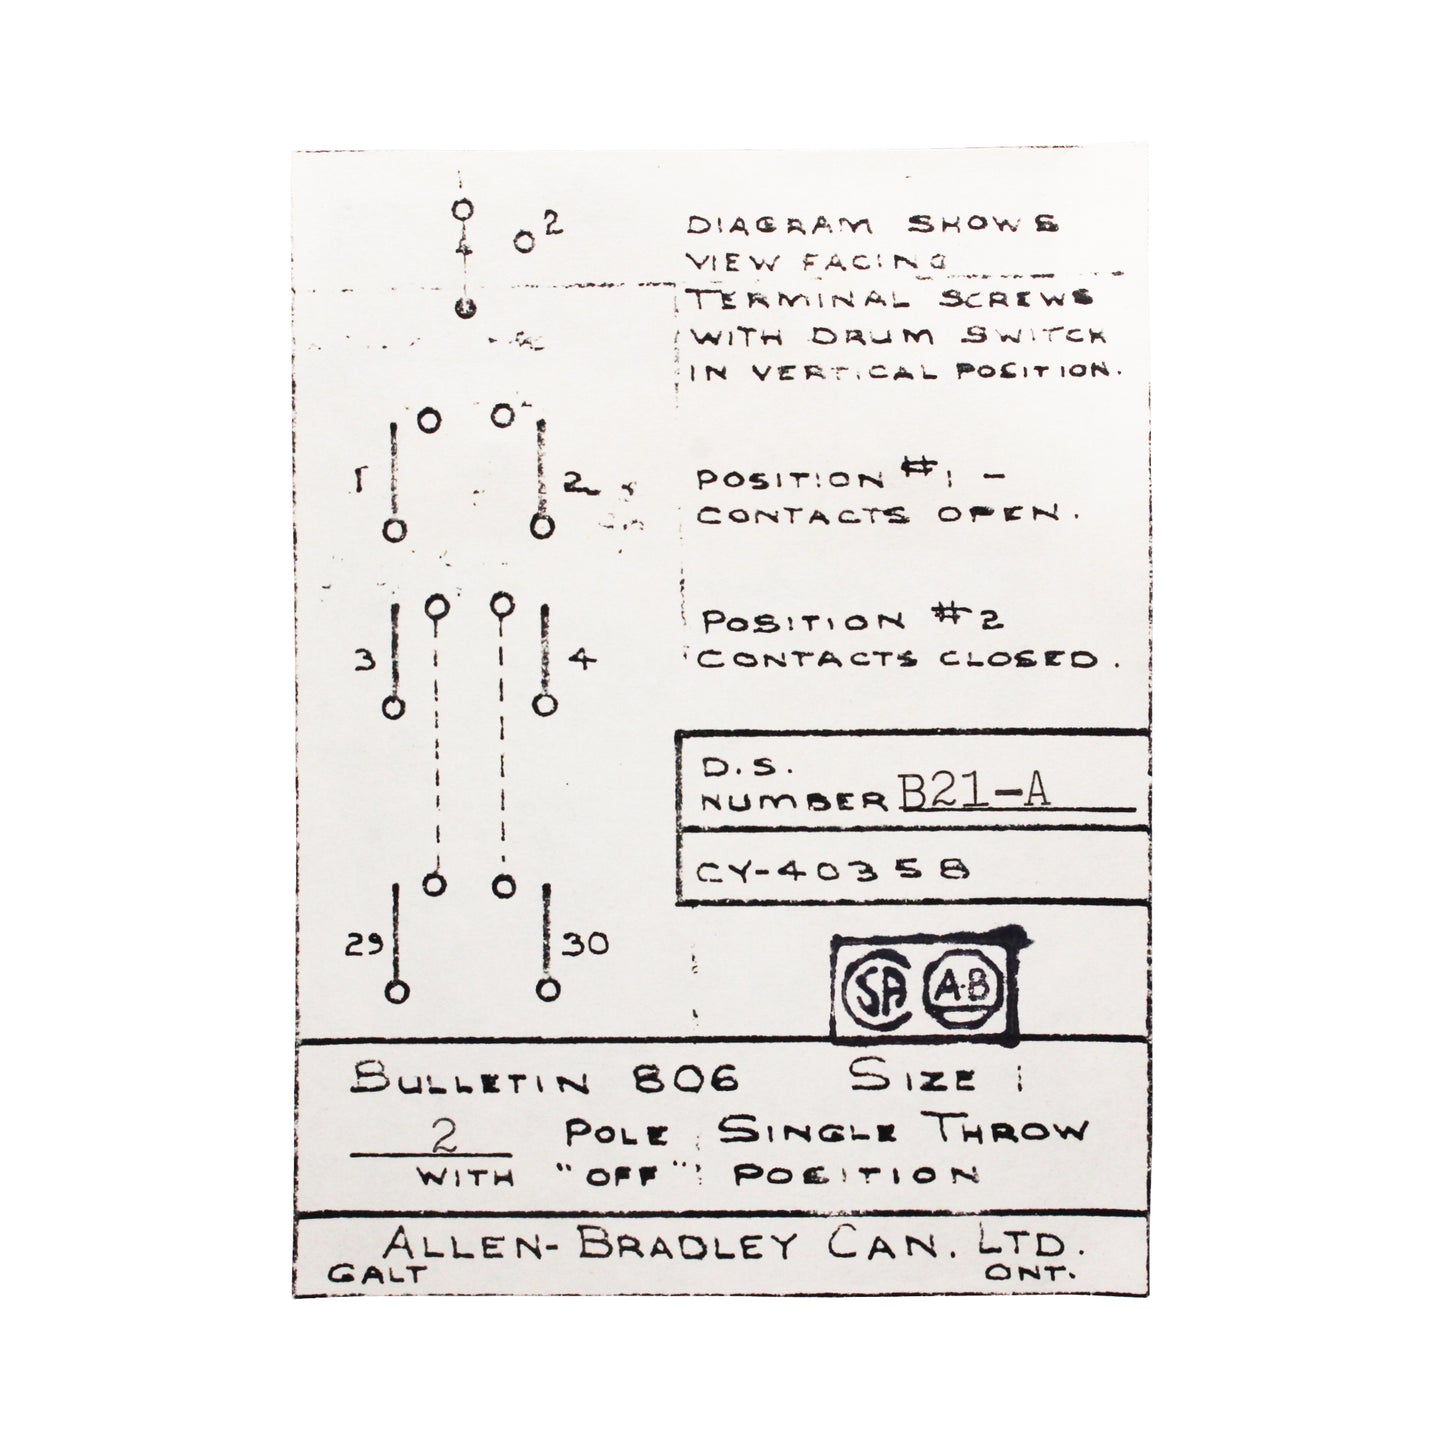 2
4
DIAGRAM SHOWS
VIEW FACING
TERMINAL SCREWS
WITH DRUM SWITCH
IN VERTICAL POSITION.
1
2
POSITION #1 -
CONTACTS OPEN.
3
4
POSITION #2
CONTACTS CLOSED.
D.S.
NUMBER B21-A
CY-40358
29
30
SA A-B
BULLETIN 806 SIZE 1
2 POLE SINGLE THROW
WITH "OFF" POSITION
ALLEN-BRADLEY CAN. LTD.
GALT ONT.